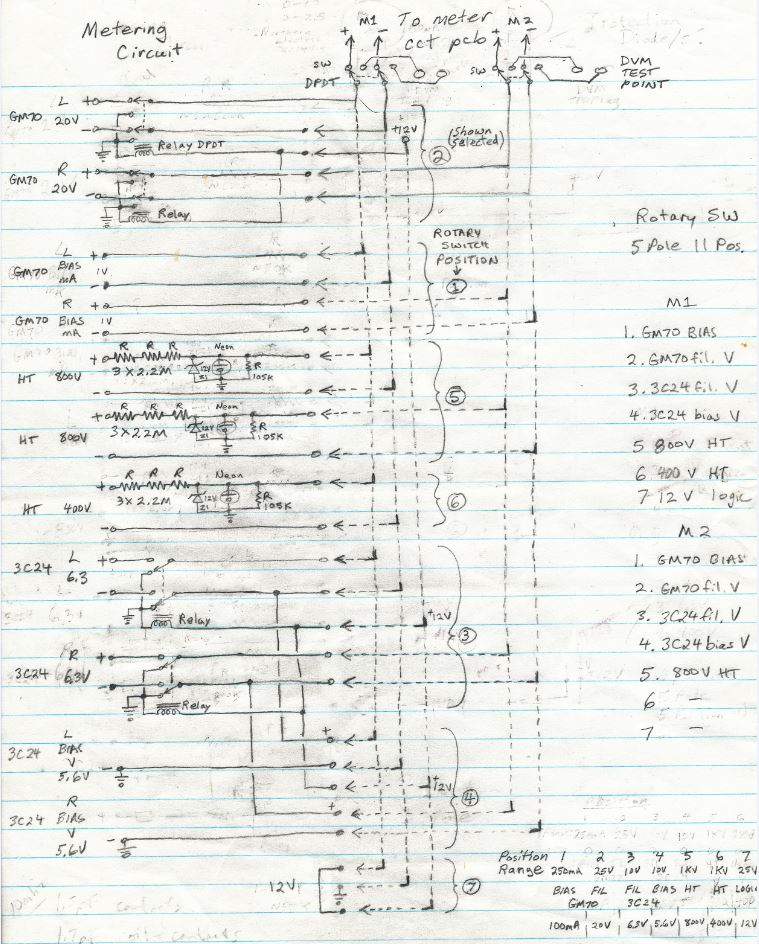 Metering
Circuit
M1 To meter M2
+ - cct pcb + -
SW
DPDT
SW
DVM
TEST
POINT
GM70 L +
20V -
Relay DPDT
+12V
(Shown
selected)
2
GM70 R +
20V -
Relay
Rotary SW
5 Pole 11 Pos.
ROTARY
SWITCH
POSITION
1
L +
GM70 BIAS 1V
mA -
R +
GM70 BIAS 1V
mA -
M1
1. GM70 BIAS
2. GM70 fil. V
3. 3C24 fil. V
4. 3C24 bias V
5 800V HT
6 400 V HT
7 12 V logic
+ R R R Neon
3 X 2.2M 12V Z1 R 105K
HT 800V -
5
+ R R R Neon
3 X 2.2M 12V Z1 R 105K
HT 800V -
+ R R R Neon
3 X 2.2M 12V Z1 R 105K
HT 400V -
6
M2
1. GM70 BIAS
2. GM70 fil. V
3. 3C24 fil. V
4. 3C24 bias V
5. 800V HT
6 -
7 -
3C24 L +
6.3 -
Relay
+12V
3
R +
3C24 6.3V -
Relay
L
3C24 BIAS
V
5.6V
+
+12V
4
R
3C24 BIAS
V
5.6V
+
12V
7
Position 1 2 3 4 5 6 7
Range 250mA 25V 10V 10V 1KV 1KV 25V
BIAS FIL FIL BIAS HT HT LOGIC
GM70 3C24
100mA 20V 6.3V 5.6V 800V 400V 12V